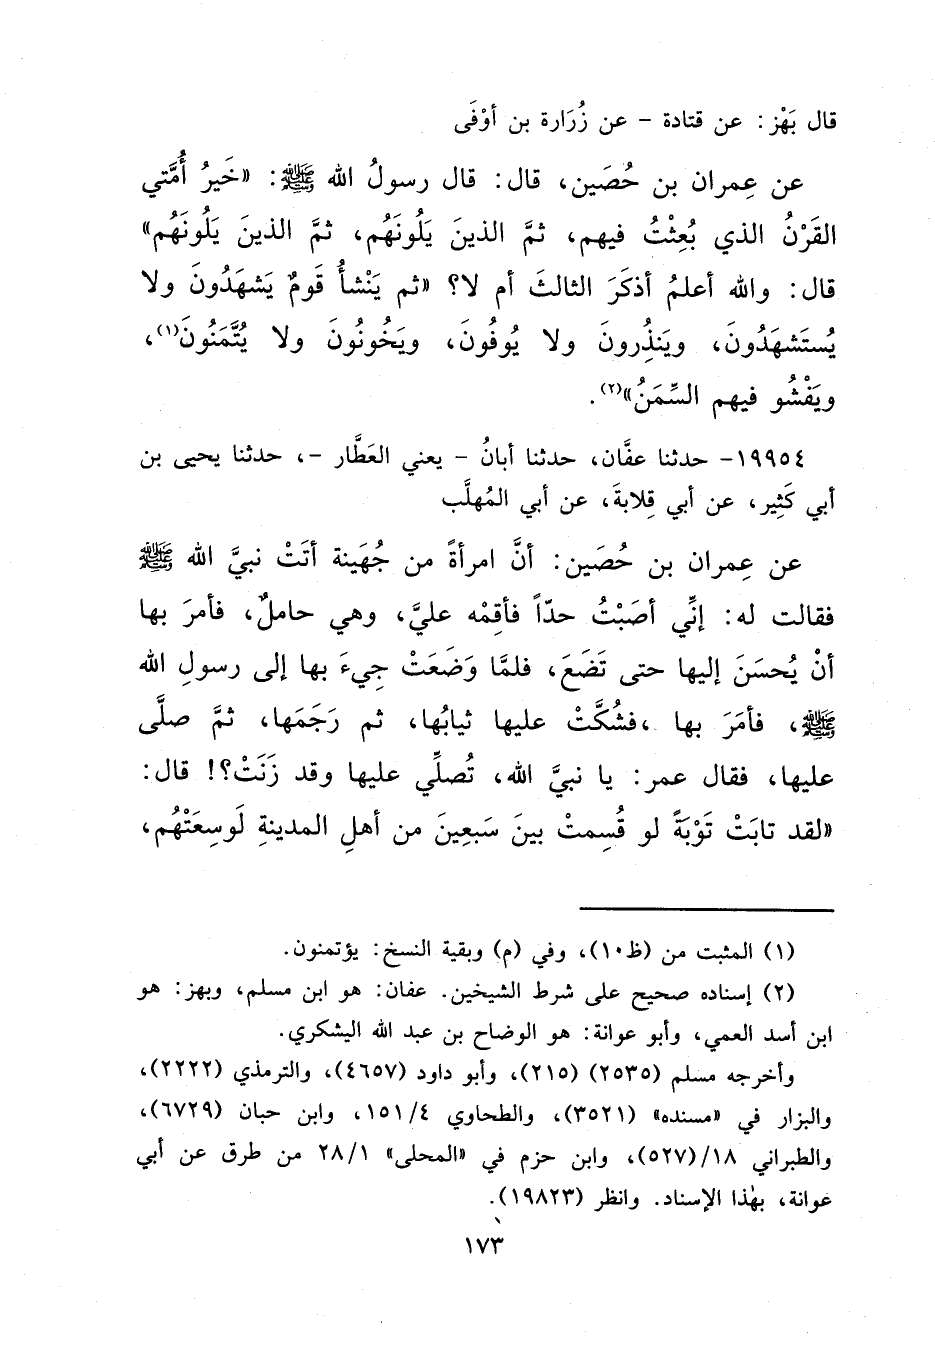 قال بَهْز: عن قتادة – عن زُرَارة بن أوْفَى
عن عِمران بن حُصَين، قال: قال رسولُ الله ﷺ: «خَيرُ أُمَّتي
القَرْنُ الذي بُعِثْتُ فيهم، ثمَّ الذينَ يَلُونَهُم، ثمَّ الذينَ يَلُونَهُم»
قال: والله أعلمُ أذكَرَ الثالثَ أم لا؟ «ثم يَنْشأُ قَومٌ يَشهَدُونَ ولا
يُستَشهَدُونَ، ويَنذُِرونَ ولا يُوفُونَ، ويَخُونُونَ ولا يُتَّمَنُونَ(١)،
ويَفْشُو فيهم السِّمَنُ»(٢).
١٩٩٥٤- حدثنا عفَّان، حدثنا أبانُ – يعني العَطَّار –، حدثنا يحيى بن
أبي كَثِير، عن أبي قِلابةَ، عن أبي المُهلَّب
عن عِمران بن حُصَين: أنَّ امرأةً من جُهَينة أتَتْ نبيَّ الله ﷺ
فقالت له: إنِّي أصَبْتُ حدّاً فأقِمْه عليَّ، وهي حاملٌ، فأمرَ بها
أنْ يُحسَنَ إليها حتى تَضَعَ، فلمَّا وَضَعَتْ جِيءَ بها إلى رسولِ الله
ﷺ، فأمَرَ بها ،فشُكَّتْ عليها ثيابُها، ثم رَجَمَها، ثمَّ صلَّى
عليها، فقال عمر: يا نبيَّ الله، تُصلِّي عليها وقد زَنَتْ؟! قال:
«لقد تابَتْ تَوْبَةً لو قُسِمتْ بينَ سَبعِينَ من أهلِ المدينةِ لَوسِعَتْهُم،
(١) المثبت من (ظ١٠)، وفي (م) وبقية النسخ: يؤتمنون.
(٢) إسناده صحيح على شرط الشيخين. عفان: هو ابن مسلم، وبهز: هو
ابن أسد العمي، وأبو عوانة: هو الوضاح بن عبد الله اليشكري.
وأخرجه مسلم (٢٥٣٥) (٢١٥)، وأبو داود (٤٦٥٧)، والترمذي (٢٢٢٢)،
والبزار في «مسنده» (٣٥٢١)، والطحاوي ١٥١/٤، وابن حبان (٦٧٢٩)،
والطبراني ١٨/(٥٢٧)، وابن حزم في «المحلى» ٢٨/١ من طرق عن أبي
عوانة، بهٰذا الإسناد. وانظر (١٩٨٢٣).
١٧٣